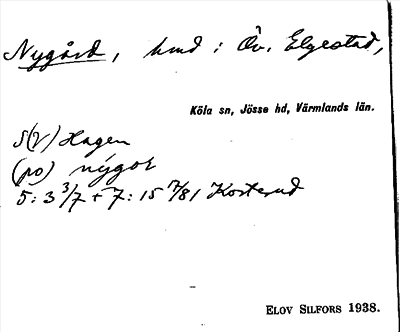 Nygård, hmd i Öv. Elgestad,
Köla sn, Jösse hd, Värmlands län.
S(V) Hagen
(po) nýgor
5: 3 3/7 + 7: 15 7/81 Kosterud
ELOV SILFORS 1938.